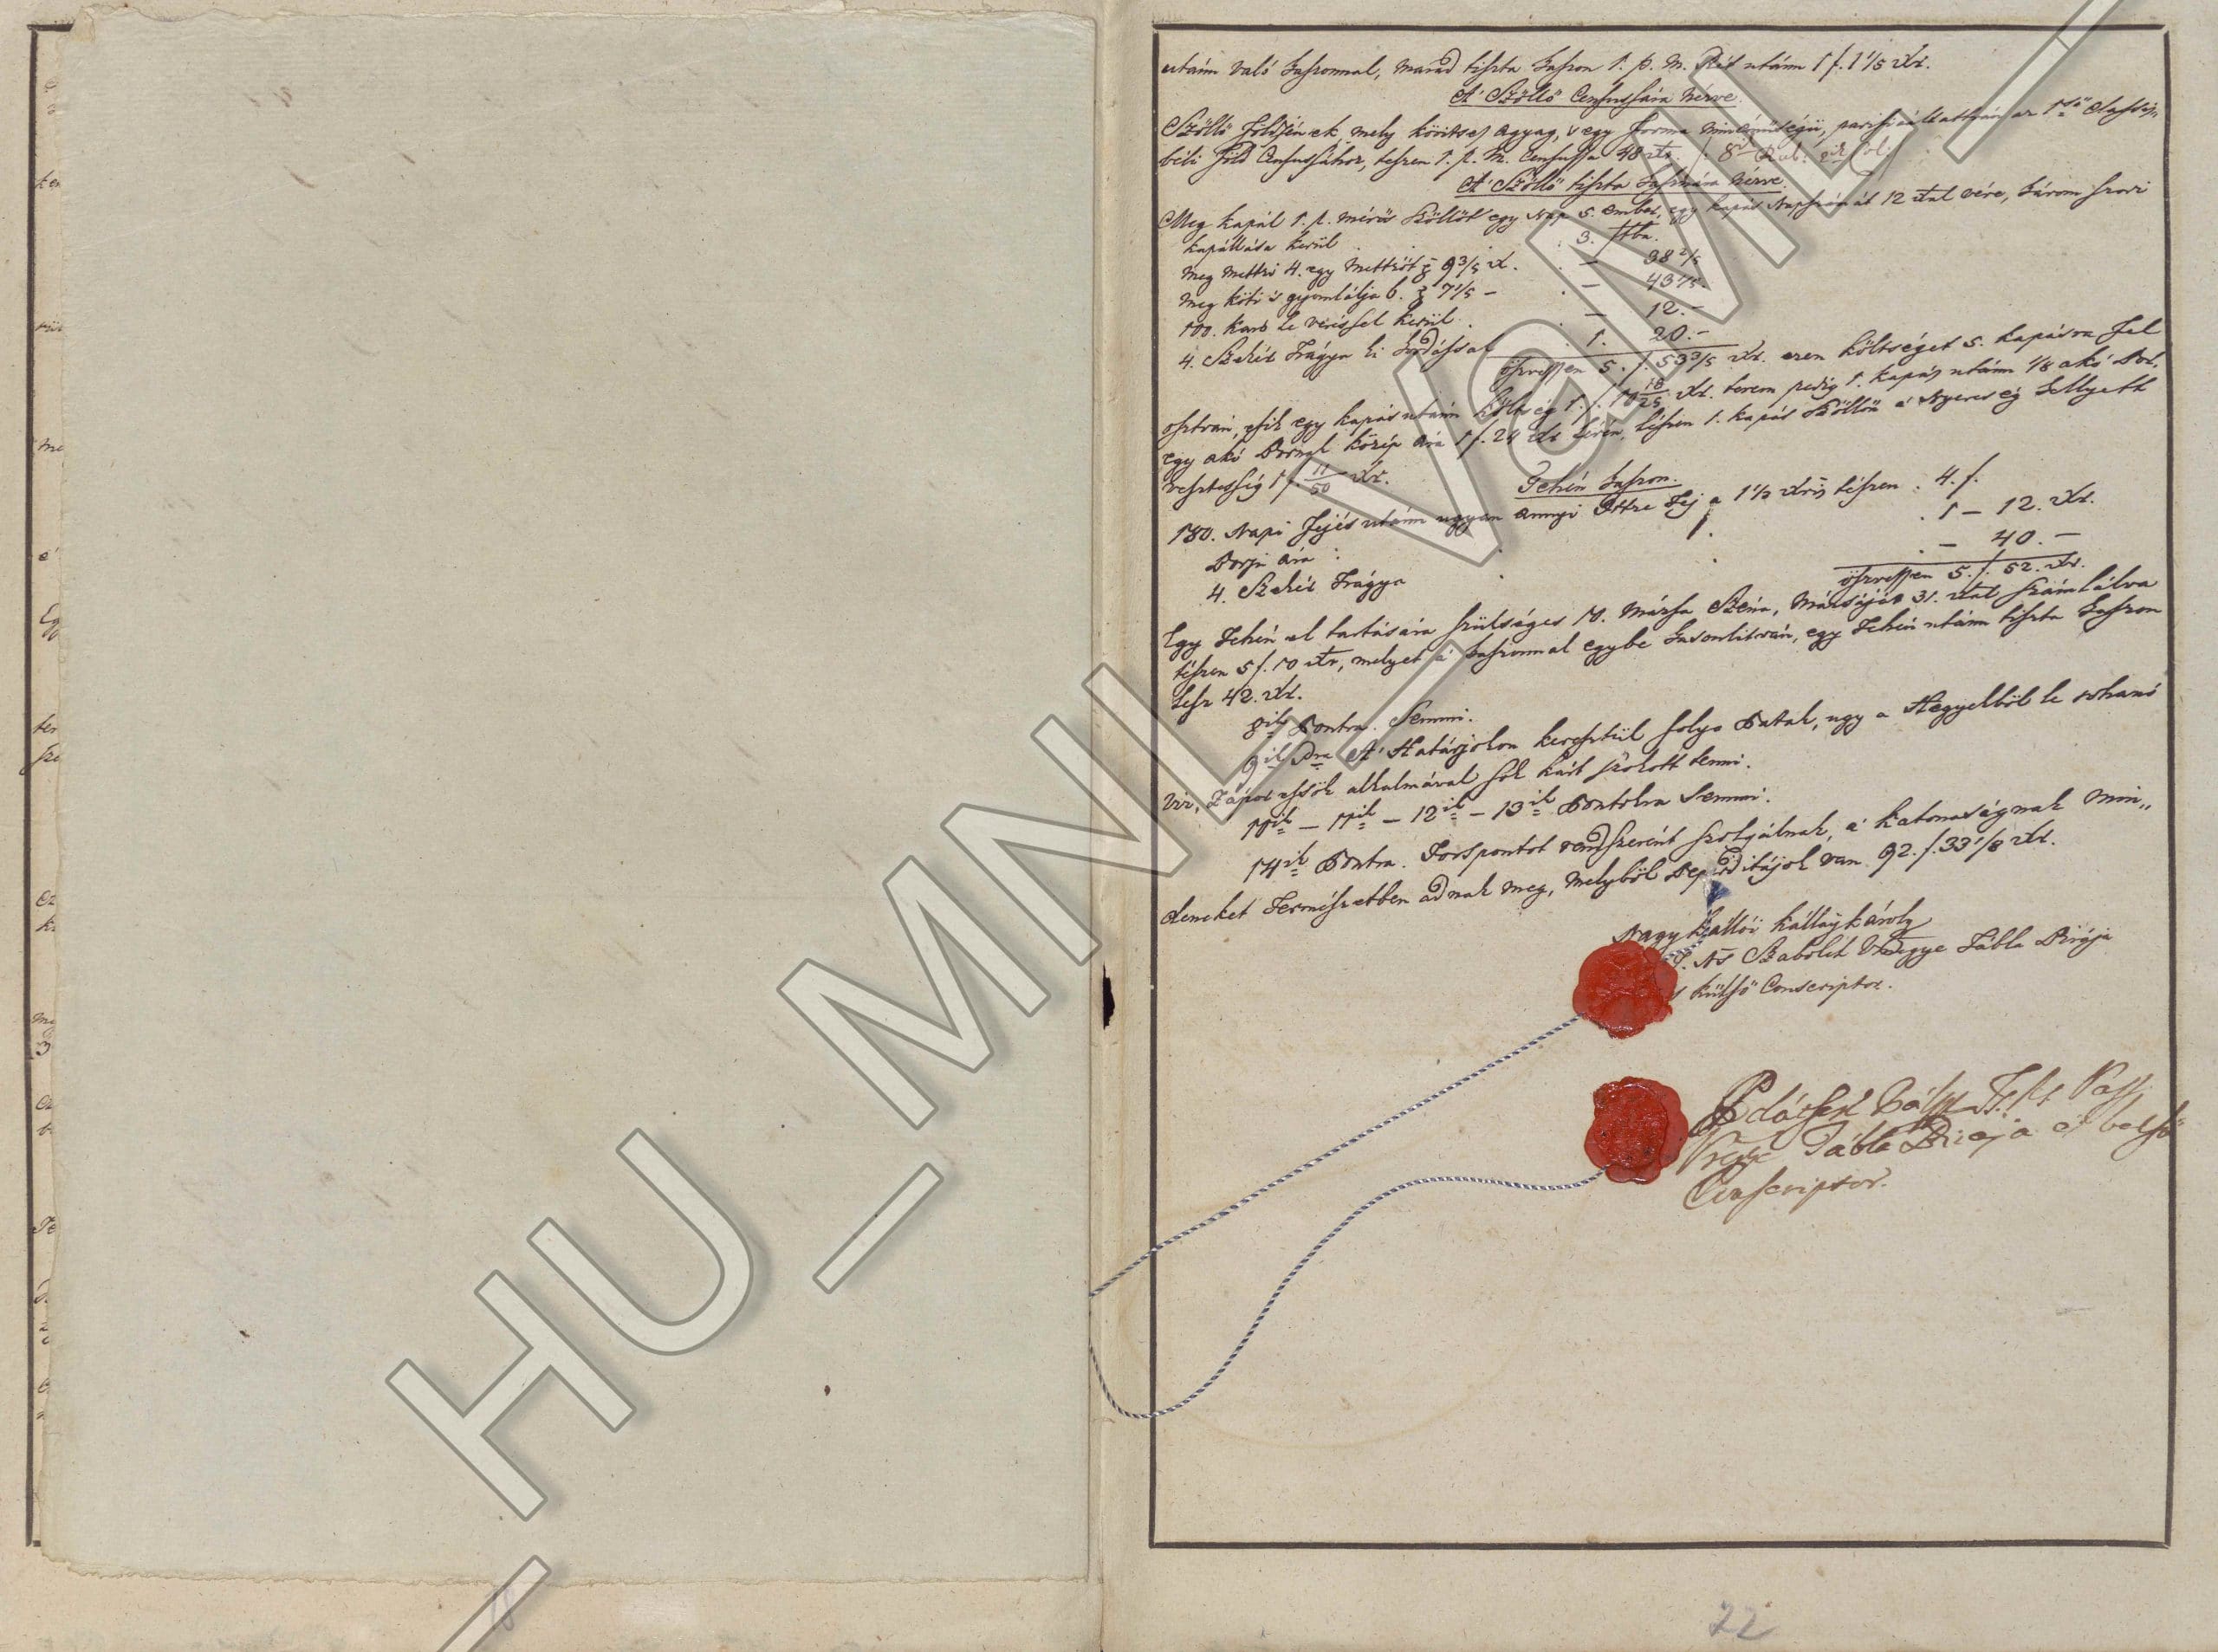 utánn való haszonnal, marad tiszta haszon 1. p. M. Rét utánn 1 f. 1 1/5 Xr.
A' Szőllő Censussára nézve
Szőllő földjének, mely kövitses agyag, s egy forma minéműségű, az 1ső Classis
béli föld Censussához, teszen 1. p. M. Censussa 48 xr.
A' Szőllő tiszta hasznára nézve
Meg kapál 1. p. mérős Szőllőt egy Nap 5. ember, egy kapás Napszámát 12 Xral véve, három szori
kapállása kerül 3. f
meg mettzi 4. egy mettzőt 9 3/5 x. — 38 2/5
meg köti 's gyomlálja 6. 7 1/5 — — 43 1/5
100. karó le veréssel kerül — 12. —
4. Szekér Trágya ki hordással 1. 20. —
öszvessen 5. f. 53 3/5 Xr. ezen költséget 5. kapásra fel
osztván, esik egy kapás utánn költség 1. f. 10 18/25 Xr. terem pedig 1. kapás utánn 1/8 akó Bor,
egy akó Bornak közép ára 1 f. 24 Xr lévén, tészen 1. kapás Szőllőn a' Nyereség hellyett
vesztesség 1 f. 11/50 Xr.
Tehén haszon.
180. Napi fejés utánn ugyan annyi Ittze Tej a 1 1/3 Xris tészen . 4. f.
Borju ára . 1 — 12. Xr.
4. Szekér Trágya . — 40. —
öszvessen 5. f. 52. Xr.
Egy Tehén el tartására szükséges 10. Mázsa Széna, Mázsáját 31. Xral számlálva
tészen 5 f. 10 Xr, melyet a' haszonnal egybe hasonlítván, egy Tehén utánn tiszta haszon
lesz 42. Xr.
8ik Pontra. Semmi.
9ik Pra A' Határjokon keresztül folyo Patak, ugy a Hegyekből le rohanó
viz, Zápor essők alkalmával sok kárt szokott tenni.
10ik — 11ik — 12ik — 13ik Pontokra Semmi.
14ik Pontra. Forspontot rendszerént szolgálnak, a' katonaságnak min„
deneket Természetben adnak meg, melyből Deperditájok van 92. f. 33 1/8 Xr.
Nagy Kállói Kállay Károly
T. Ns Szabolch Vármegye Tábla Birája
s külső Conscriptor.
Tábla Birája és belső
Conscriptor.
22
HU_MNL_VaML_I